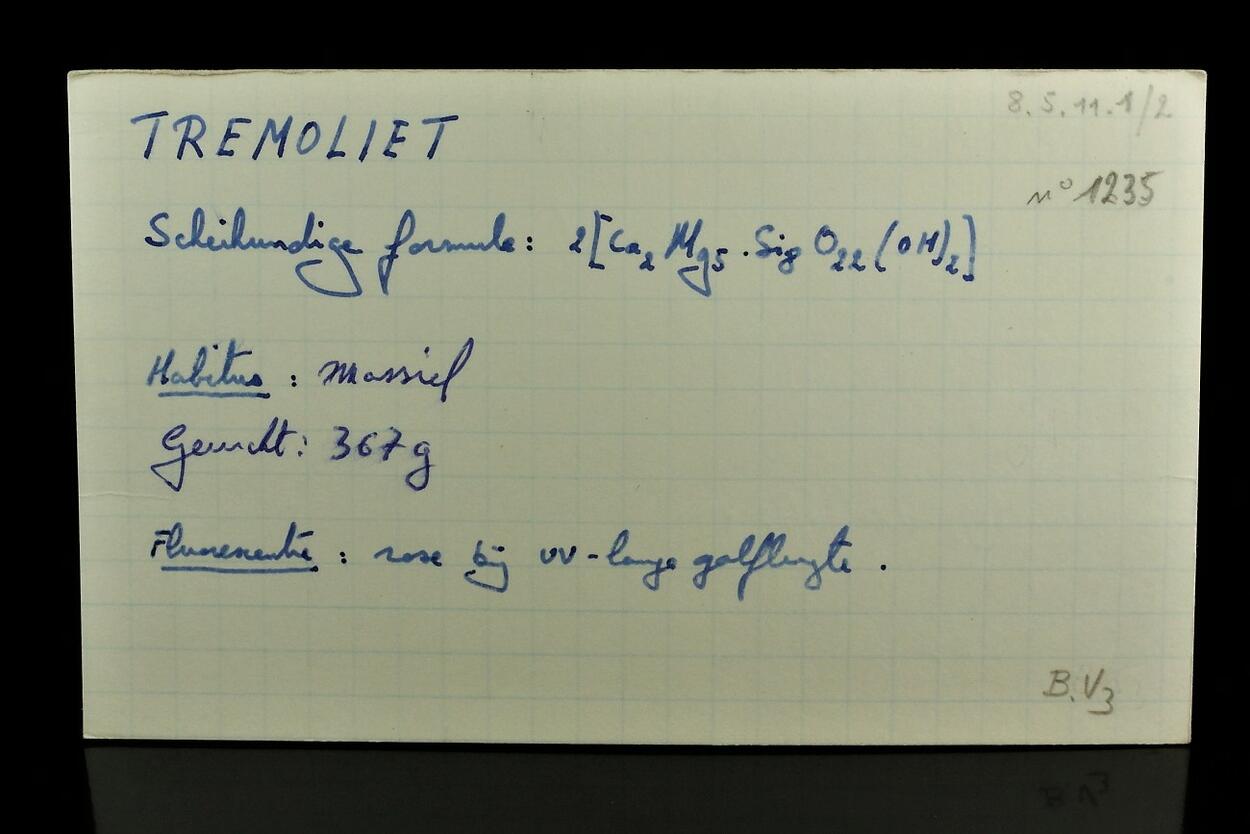 8.5.11.1/2
TREMOLIET
n° 1235
Scheikundige formule: 2[Ca₂Mg₅.Si₈O₂₂(OH)₂]
Habitus : Massief
Gewicht: 367 g
Fluorescentie : rose bij UV-lange golflengte .
B.V₃